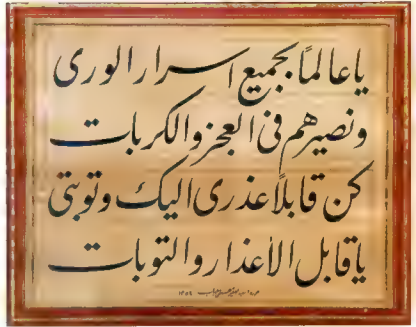 ياعالمًا بجميع اسرار الورى
ونصيرهم فى العجز والكربات
كن قابلاً عذرى اليك وتوبتى
ياقابل الأعذار والتوبات